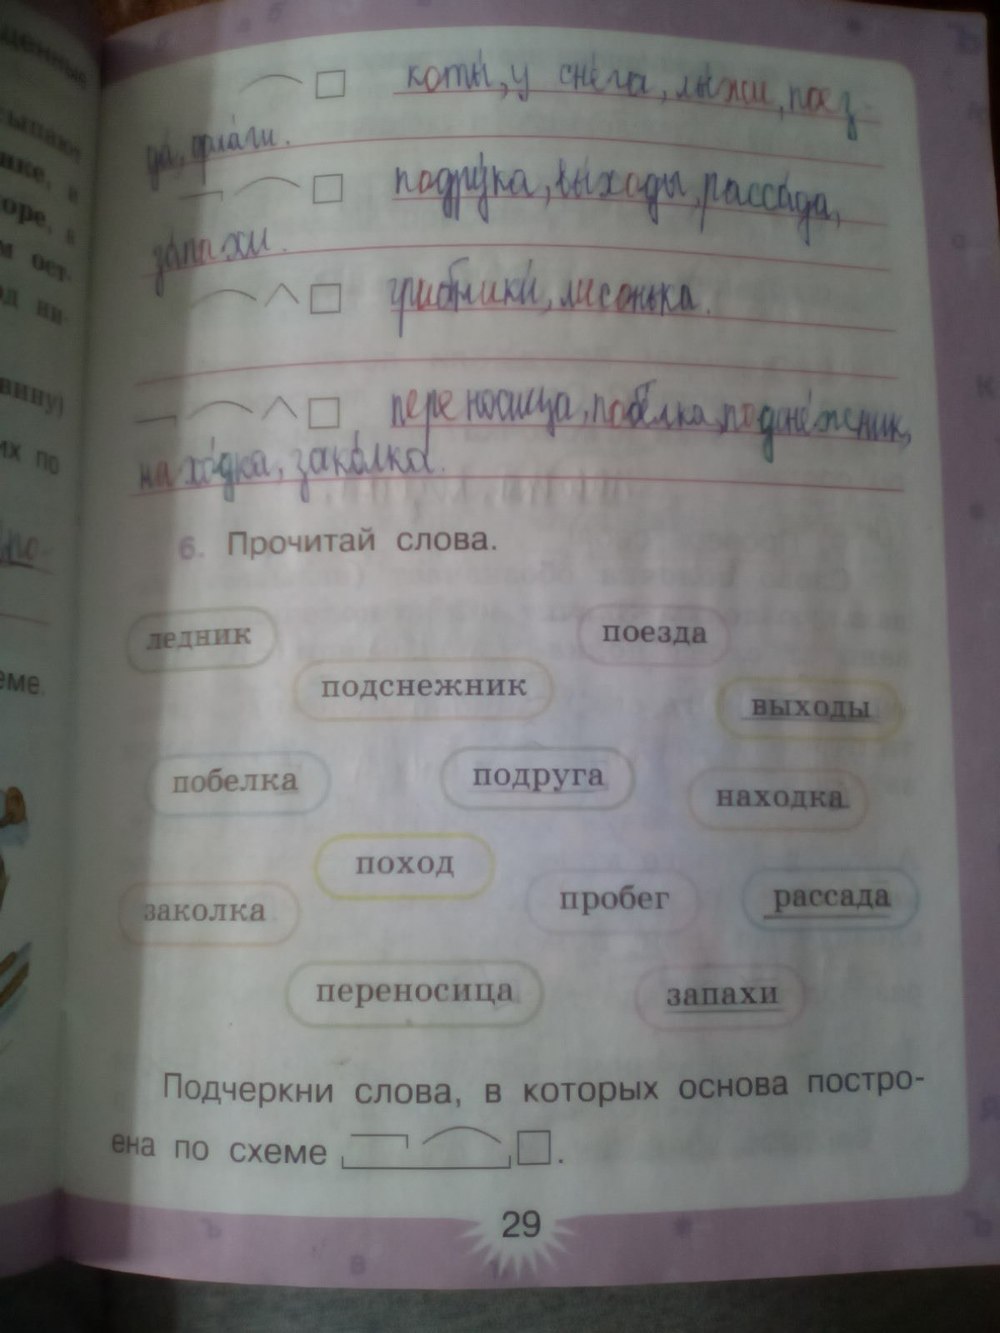 коты́, у сне́га, лы́жи, поез-
да́, фла́ги.
подру́га, вы́ходы, расса́да,
за́пахи.
грибники́, лисонька.
переносица, побе́лка, подсне́жник,
нахо́дка, зако́лка.
6. Прочитай слова.
ледник
поезда
подснежник
выходы
побелка
подруга
находка
поход
заколка
пробег
рассада
переносица
запахи
Подчеркни слова, в которых основа постро-
ена по схеме .
29